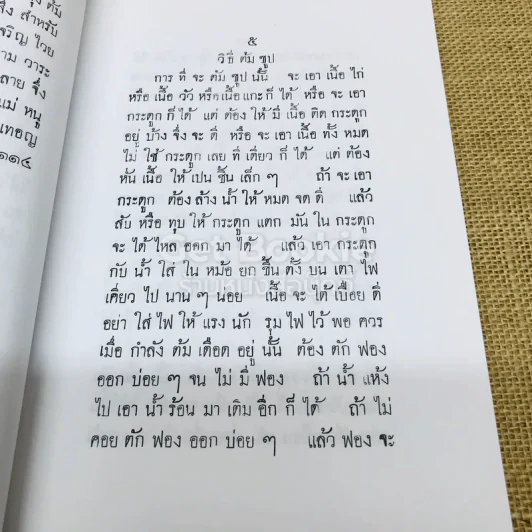 ง ต้ม
สิ่ง สำหรับ
จริญ ไวย
าม วาระ
ลาย จึ่ง
แม่ หนู
เทอญ
๑๑๔
๕
วิธี ต้ม ซูป
การ ที่ จะ ต้ม ซูป นั้น จะ เอา เนื้อ ไก่
หรือ เนื้อ วัว หรือ เนื้อ แกะ ก็ ได้ หรือ จะ เอา
กระดูก ก็ ได้ แต่ ต้อง ให้ มี เนื้อ ติด กระดูก
อยู่ บ้าง จึ่ง จะ ดี หรือ จะ เอา เนื้อ ทั้ง หมด
ไม่ ใช้ กระดูก เลย ที เดียว ก็ ได้ แต่ ต้อง
หั่น เนื้อ ให้ เปน ชิ้น เล็ก ๆ ถ้า จะ เอา
กระดูก ต้อง ล้าง น้ำ ให้ หมด จด ดี แล้ว
สับ หรือ ทุบ ให้ กระดูก แตก มัน ใน กระดูก
จะ ได้ ไหล ออก มา ได้ แล้ว เอา กระดูก
กับ น้ำ ใส่ ใน หม้อ ยก ขึ้น ตั้ง บน เตา ไฟ
เคี่ยว ไป นาน ๆ น่อย เนื้อ จะ ได้ เปื่อย ดี
อย่า ใส่ ไฟ ให้ แรง นัก รุม ไฟ ไว้ พอ ควร
เมื่อ กำลัง ต้ม เดือด อยู่ นั้น ต้อง ตัก ฟอง
ออก บ่อย ๆ จน ไม่ มี ฟอง ถ้า น้ำ แห้ง
ไป เอา น้ำ ร้อน มา เติม อีก ก็ ได้ ถ้า ไม่
คอย ตัก ฟอง ออก บ่อย ๆ แล้ว ฟอง จะ